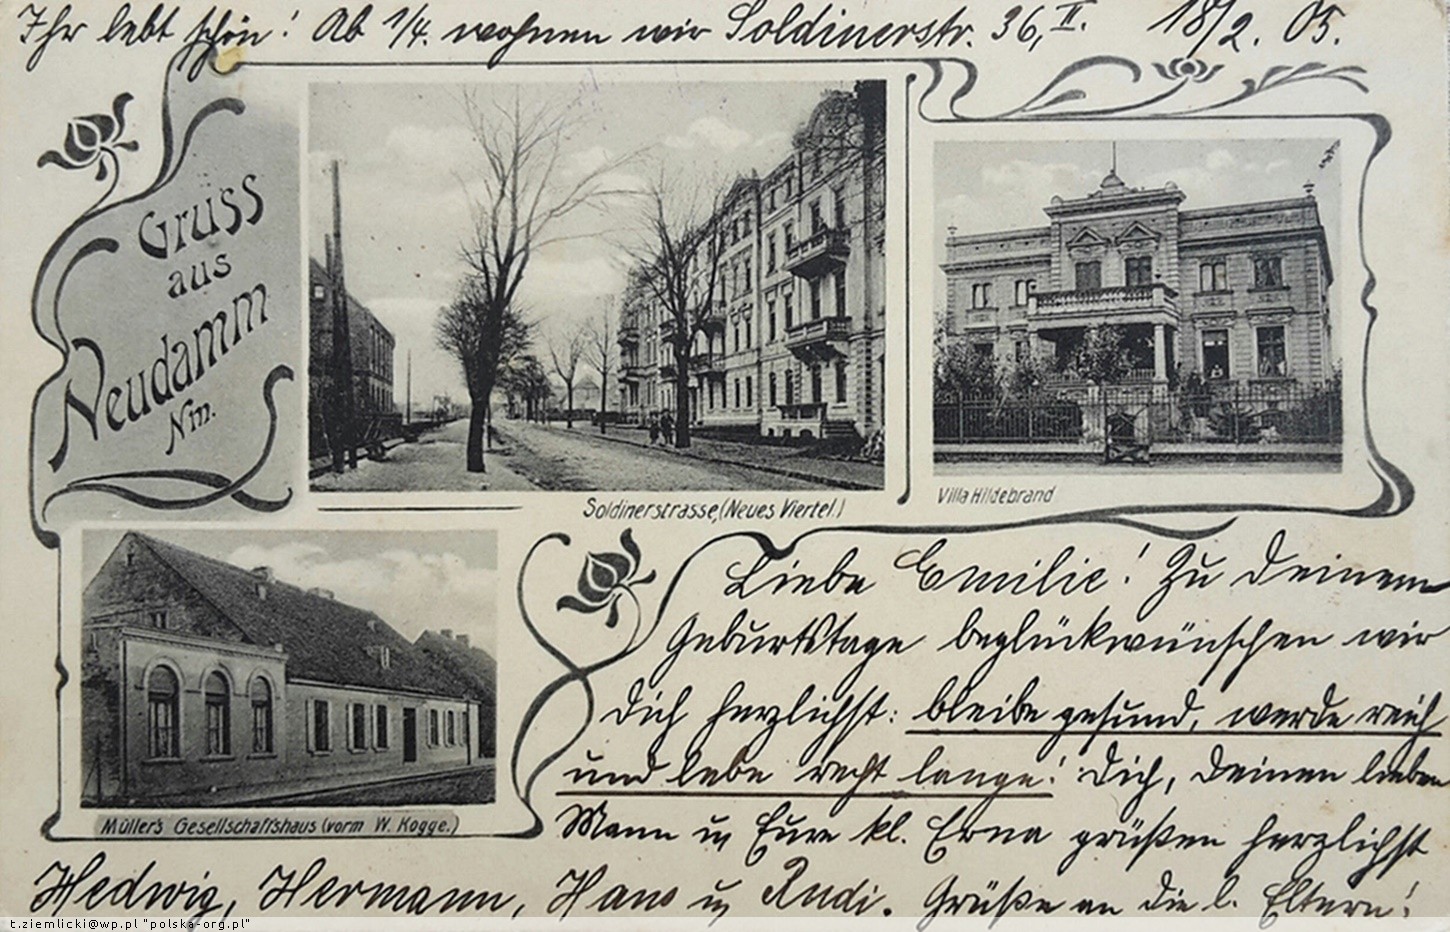 Ihr lebt schön! Ab 1/4. wohnen wir Soldinerstr. 36, II. 18/2. 05.
Gruss
aus
Neudamm
Nm.
Soldinerstrasse, (Neues Viertel.)
Villa Hildebrand
Müller's Gesellschaftshaus (vorm W. Kogge.)
Liebe Emilie! Zu Deinem
Geburtstage beglückwünschen wir
Dich herzlichst: bleibe gesund, werde reich
und lebe recht lange! Dich, Deinen lieben
Mann u. Eure kl. Erna grüßen herzlichst
Hedwig, Hermann, Hans u. Rudi. Grüße an die l. Eltern!
t.ziemlicki@wp.pl "polska-org.pl"